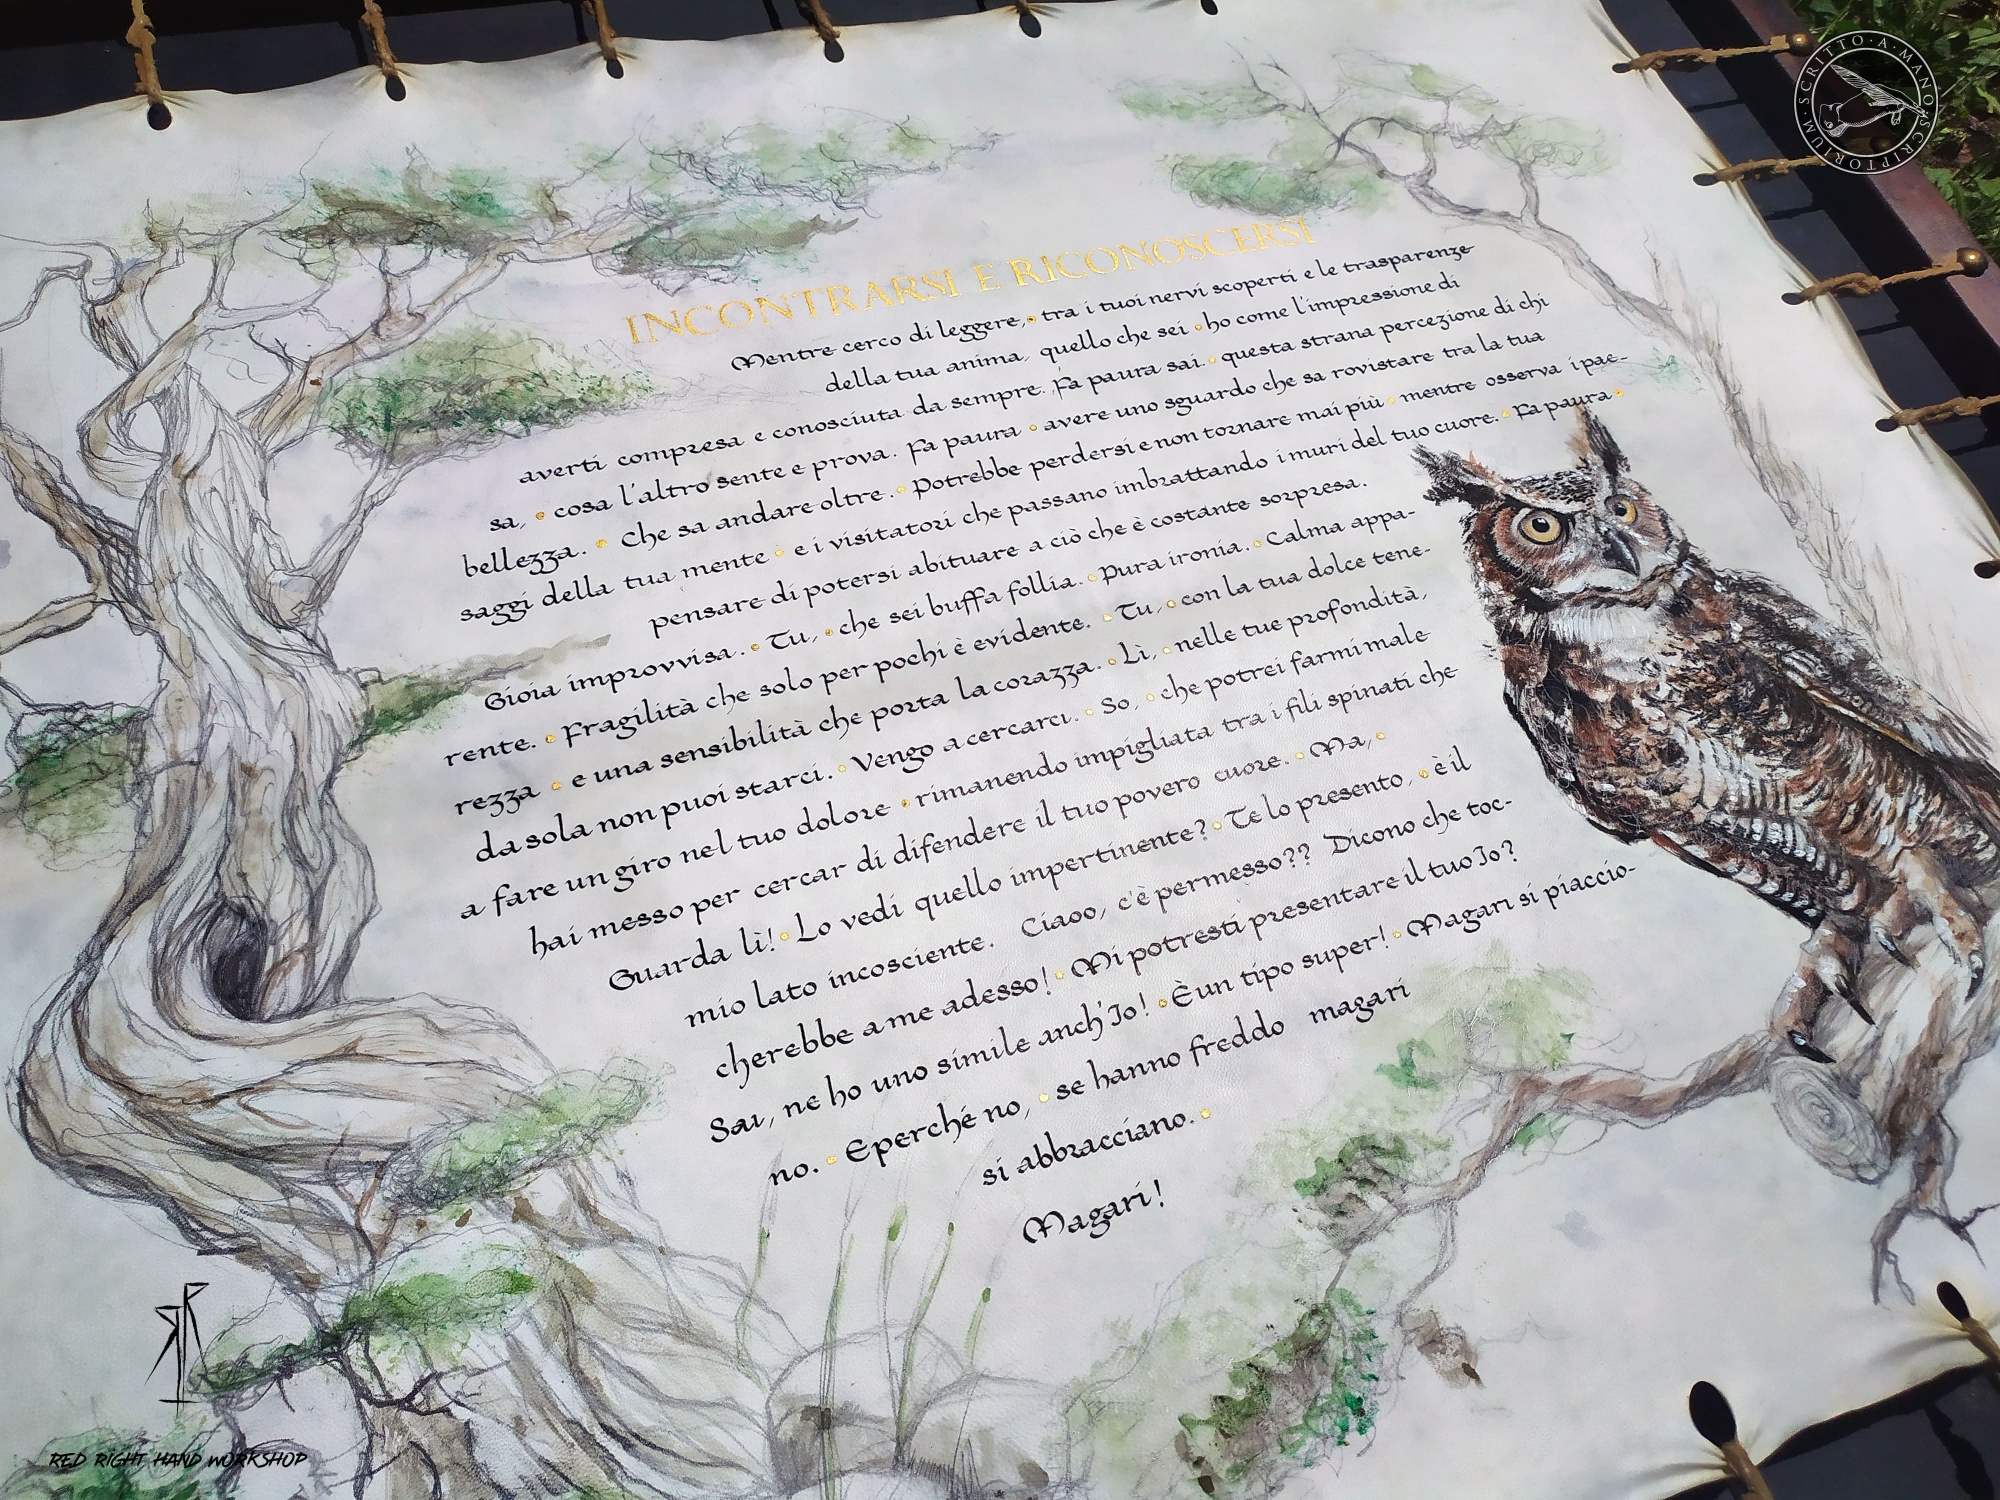 INCONTRARSI E RICONOSCERSI
Mentre cerco di leggere, tra i tuoi nervi scoperti e le trasparenze
della tua anima, quello che sei ho come l'impressione di
averti compresa e conosciuta da sempre. Fa paura sai. questa strana percezione di chi
sa, cosa l'altro sente e prova. Fa paura avere uno sguardo che sa rovistare tra la tua
bellezza. Che sa andare oltre. Potrebbe perdersi e non tornare mai più mentre osserva i pae-
saggi della tua mente e i visitatori che passano imbrattando i muri del tuo cuore. Fa paura
pensare di potersi abituare a ciò che è costante sorpresa.
Gioia improvvisa. Tu, che sei buffa follia. Pura ironia. Calma appa-
rente. Fragilità che solo per pochi è evidente. Tu, con la tua dolce tene-
rezza e una sensibilità che porta la corazza. Lì, nelle tue profondità,
da sola non puoi starci. Vengo a cercarci. So, che potrei farmi male
a fare un giro nel tuo dolore rimanendo impigliata tra i fili spinati che
hai messo per cercar di difendere il tuo povero cuore. Ma,
Guarda lì! Lo vedi quello impertinente? Te lo presento, è il
mio lato incosciente. Ciaoo, c'è permesso?? Dicono che toc-
cherebbe a me adesso! Mi potresti presentare il tuo Io?
Sai, ne ho uno simile anch'Io! È un tipo super! Magari si piaccio-
no. E perché no, se hanno freddo magari
si abbracciano.
Magari!
SCRITTO·A·MANO SCRIPTORIUM
RED RIGHT HAND WORKSHOP